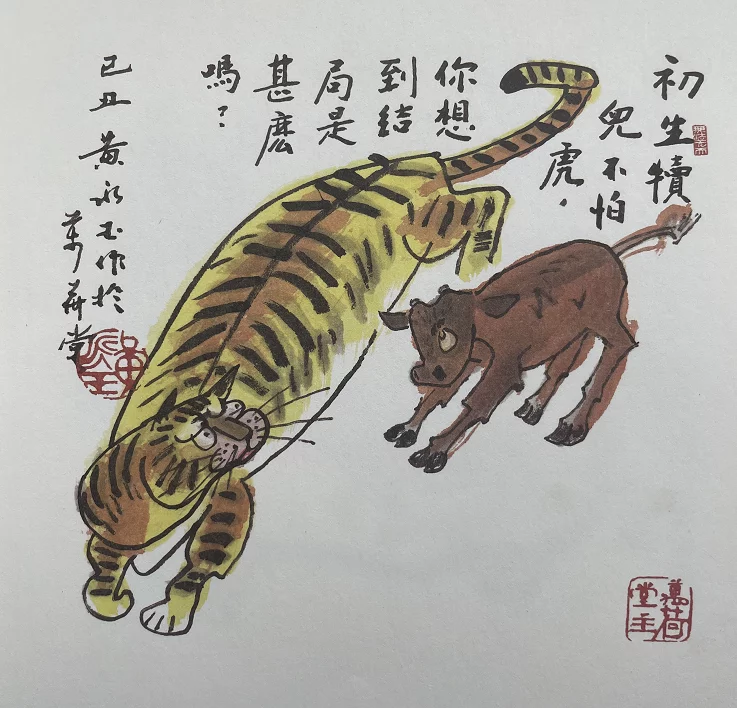 初生犢
兒不怕
虎，
你想
到結
局是
甚麽
嗎？
己丑
黃永玉作於
萬荷堂
萬荷
堂主